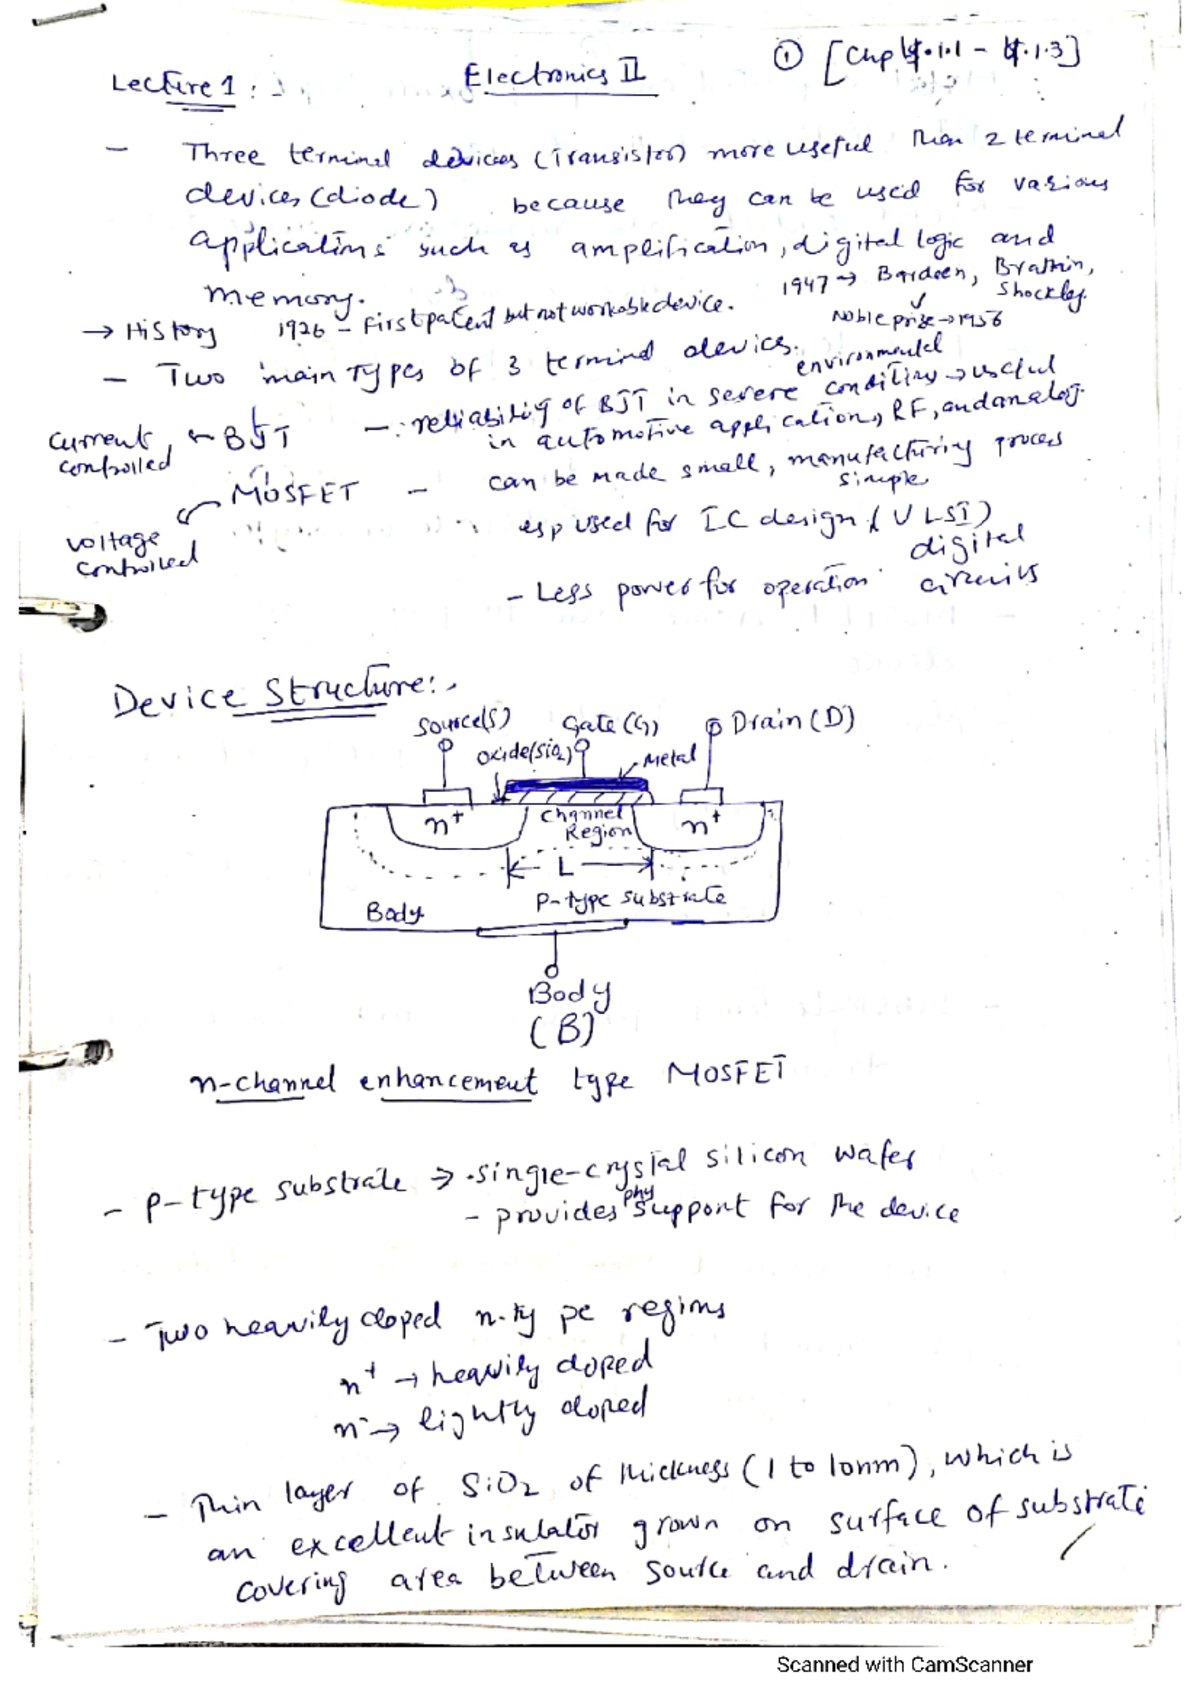 Lecture 1 :
Electronics II
① [Chp 4.1.1 - 4.1.3]
- Three terminal devices (Transistor) more useful than 2 terminal
devices (diode) because they can be used for various
applications such as amplification, digital logic and
memory.
→ History 1926 - First patent but not workable device.
1947 → Bardeen, Brattain,
Shockley.
Noble prize → 1956
- Two main types of 3 terminal devices.
current controlled ← BJT - reliability of BJT in severe environmental condition → useful
in automotive application, RF, and analog.
voltage controlled ← MOSFET - can be made small, manufacturing process
simple
esp used for IC design (VLSI)
digital
circuits
- Less power for operation
Device Structure:
Source(S) Gate(G) Drain(D)
Oxide(SiO2) Metal
n+ Channel Region n+
L
Body P-type substrate
Body
(B)
n-channel enhancement type MOSFET
- P-type substrate → single-crystal silicon wafer
- provides phy support for the device
- Two heavily doped n-type regions
n+ → heavily doped
n- → lightly doped
- Thin layer of SiO2 of thickness (1 to 10nm), which is
an excellent insulator grown on surface of substrate
covering area between source and drain.
Scanned with CamScanner